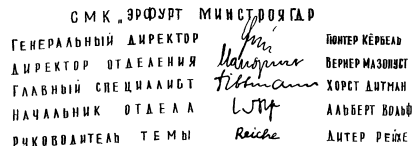 СМК „ЭРФУРТ МИНСТРОЯ ГДР
ГЕНЕРАЛЬНЫЙ ДИРЕКТОР ГЮНТЕР КЁРБЕЛЬ
ДИРЕКТОР ОТДЕЛЕНИЯ ВЕРНЕР МАЗОПУСТ
ГЛАВНЫЙ СПЕЦИАЛИСТ Dittmann ХОРСТ ДИТМАН
НАЧАЛЬНИК ОТДЕЛА АЛЬБЕРТ ВОЛЬФ
РУКОВОДИТЕЛЬ ТЕМЫ Reiche ДИТЕР РЕЙХЕ